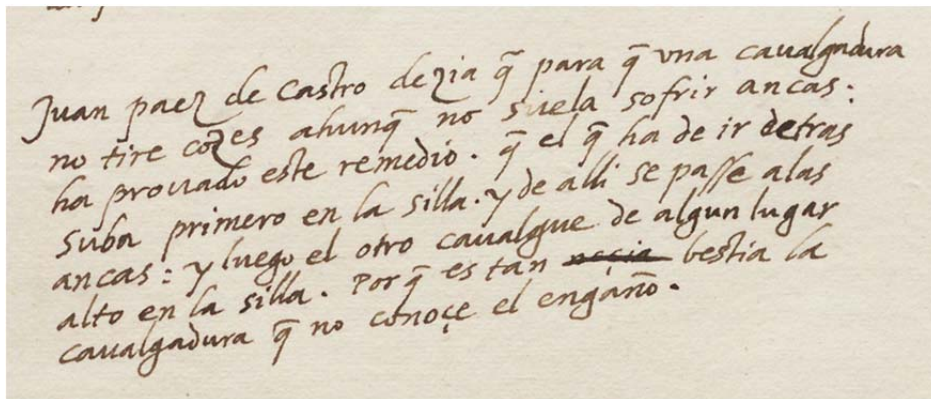 Juan paez de Castro dezia q̃ para q̃ vna caualgadura
no tire cozes ahunq̃ no suela sofrir ancas:
ha prouado este remedio. q̃ el q̃ ha de ir detras
suba primero en la silla. y de alli se passe alas
ancas: y luego el otro caualgue de algun lugar
alto en la silla. Porq̃ es tan neçia bestia la
caualgadura q̃ no conoçe el engaño.